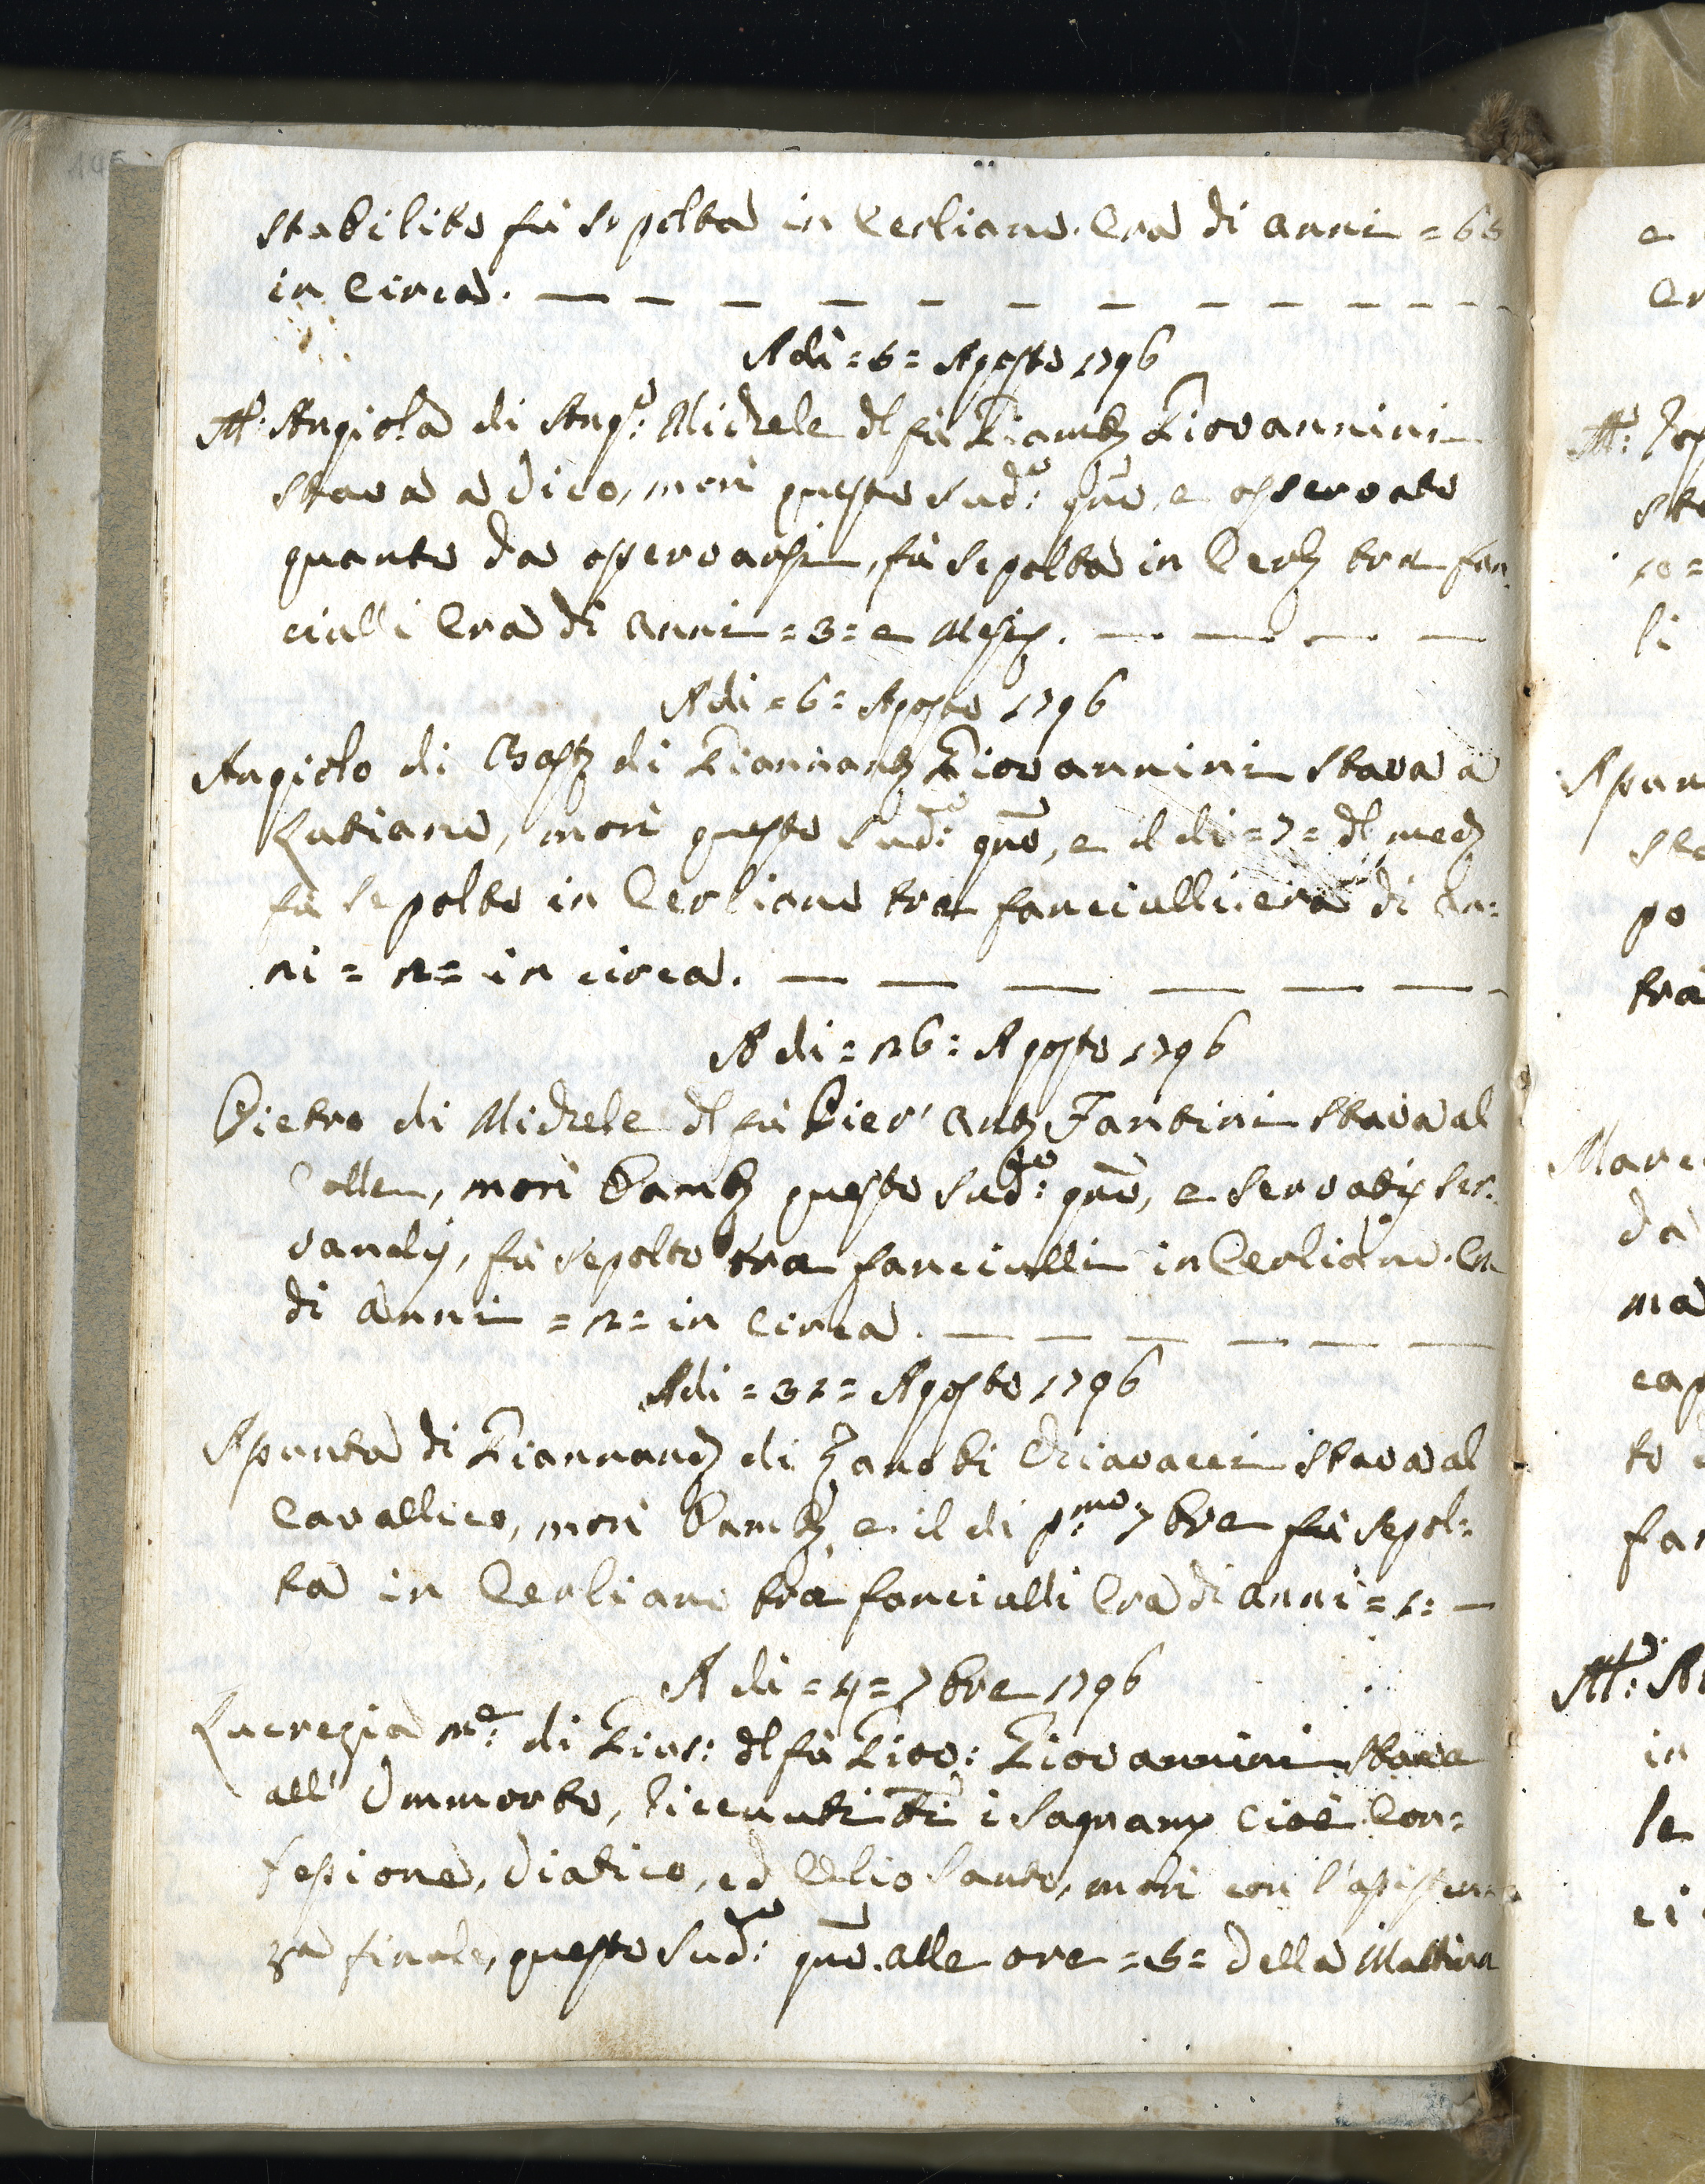 stabilito fù sepolta in Cerliano. Era di anni = 65
in Circa.
A di = 6 = Agosto 1796
M:ª Angiola di Ang:º Michele dl fù Giambª Giovannini
stava a Vico, mori questo sud:º gno, e osservato
quanto da osservarsi, fù sepolta in Cerlº tra fan:
ciulli Era di anni = 3 = e Mesi.
A di = 6 = Agosto 1796
Angiolo di Bastº di Giannantº Giovannini stava a
Lutiano, morì questo sud:º gno, e il di = 7 = dl medº
fù sepolto in Cerliano tra fanciulli era di an:
ni = 2 = in circa.
A di = 26 = Agosto 1796
Pietro di Michele dl fù Pier' Antº Fantini stava al
Colle, mori Bambº questo sud:º gno, e servatis ser:
vandis, fù sepolto tra fanciulli in Cerliano. Era
di anni = 2 = in Circa.
A di = 31 = Agosto 1796
Apunta di Giannandª di Zanobi Chiavacci stava al
Cavallico, mori Bambª e il di p:mo 7bre fù sepol:
ta in Cerliano tra fanciulli Era di anni = 1 =
A di = 4 = 7bre 1796
Lucrezia m:e di Gius: dl fù Giov: Giovannini stava
all' Ommorto, Ricevuti tti i Sagramti cioè Con:
fessione, Viatico, ed Olio Santo, morì con l'assisten:
za finale, questo sud:º gno. alle ore = 6 = della Mattina
e
Er
M:ª
10 =
li
po
tra
da
ma
to
M:ª
in
le